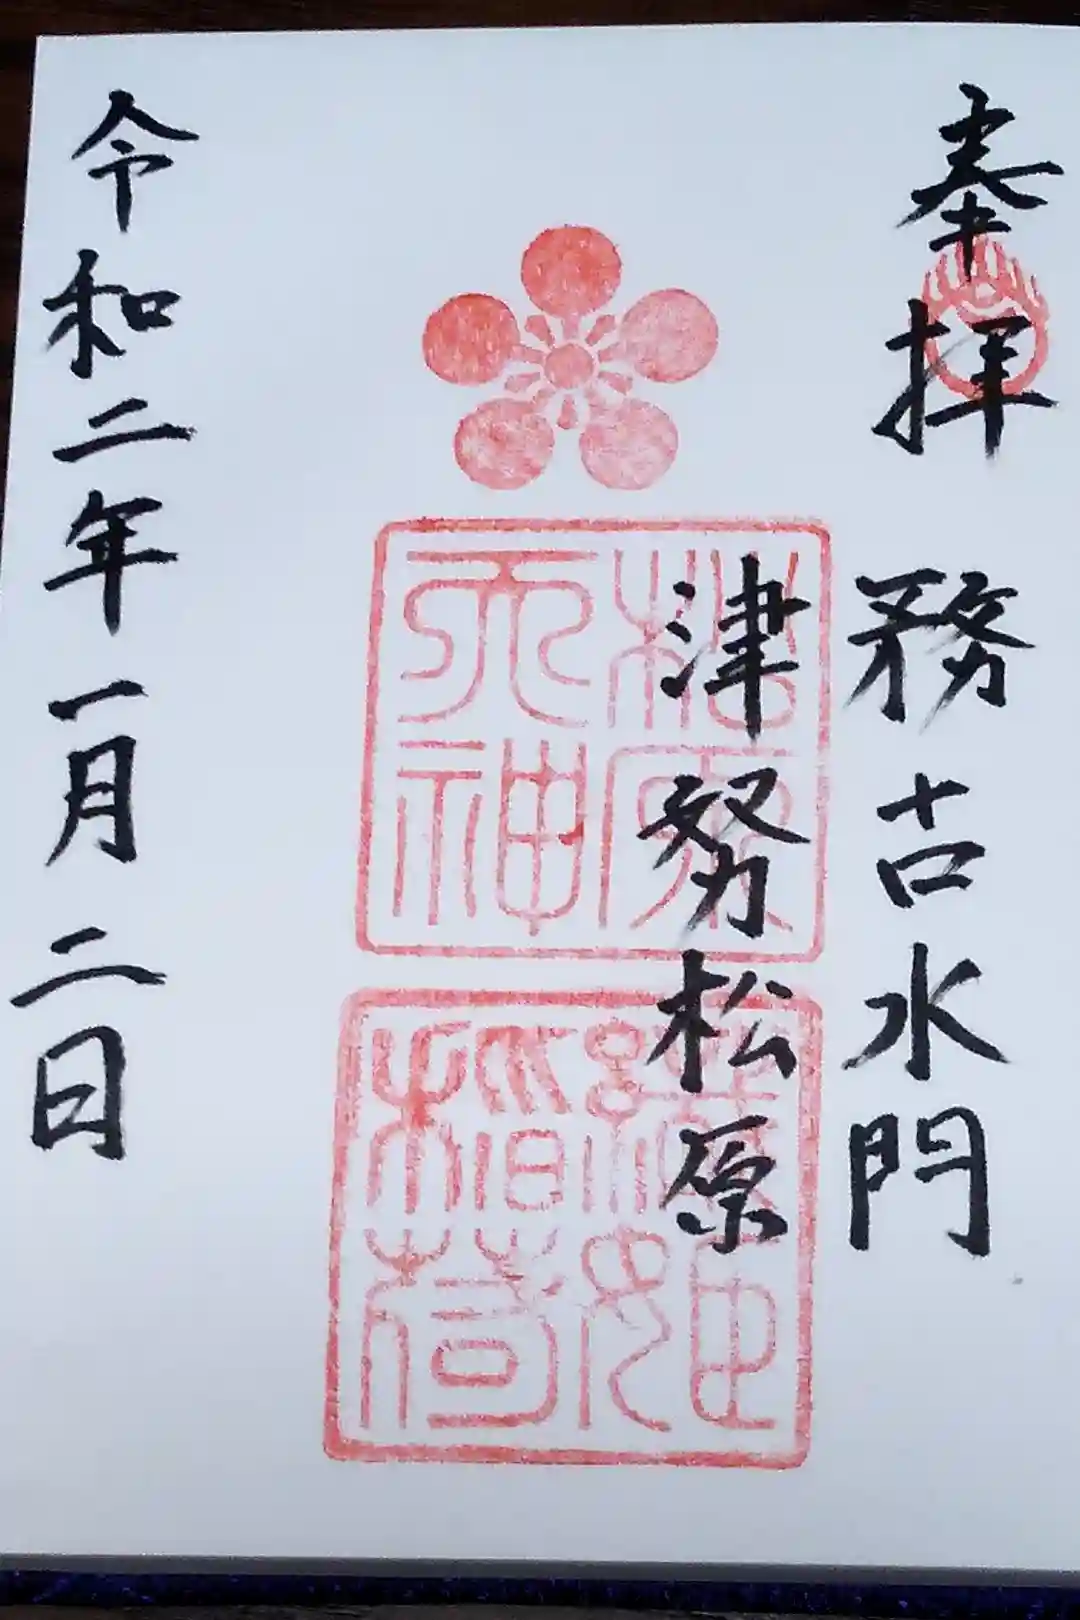 奉拝 務古水門
津努松原
松原
天神
稲荷
令和二年一月二日